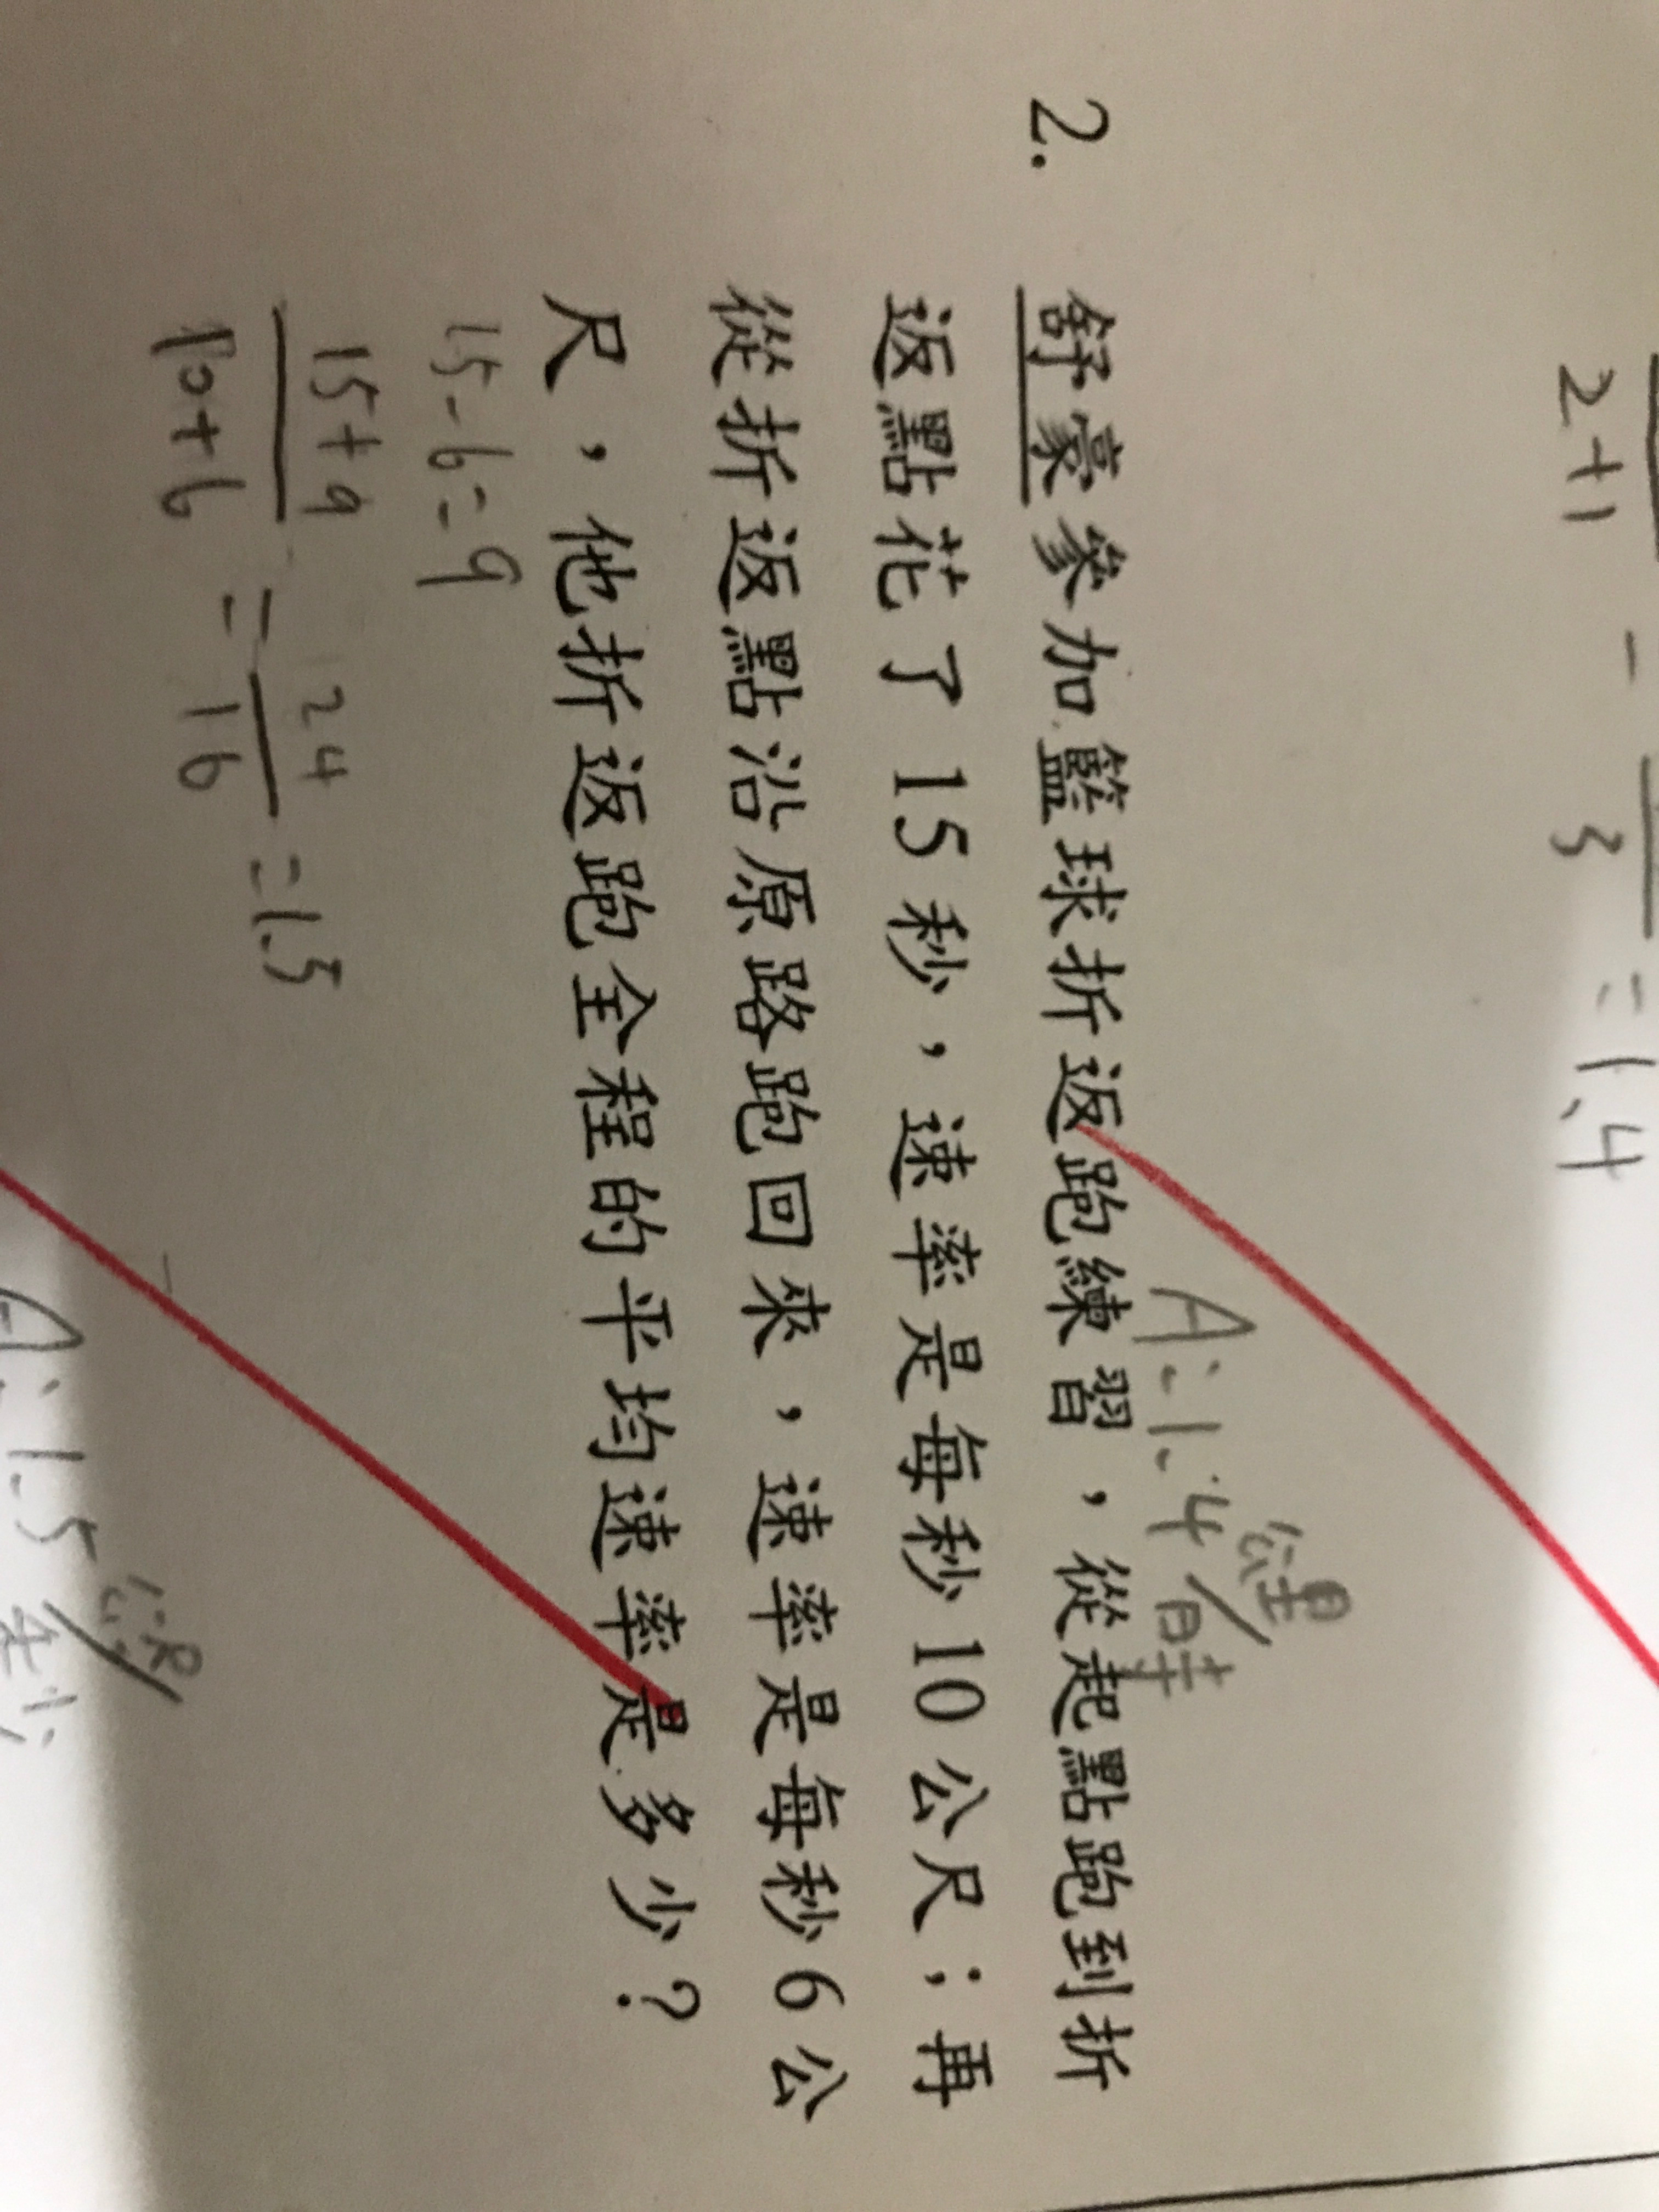 2+1 - 3 = 1.4
A:1.4公里/時
2. 舒豪參加籃球折返跑練習，從起點跑到折
返點花了 15 秒，速率是每秒 10 公尺；再
從折返點沿原路跑回來，速率是每秒 6 公
尺，他折返跑全程的平均速率是多少？
15-6=9
15+9 24
10+6 = 16 =1.5
A:1.5公尺/秒